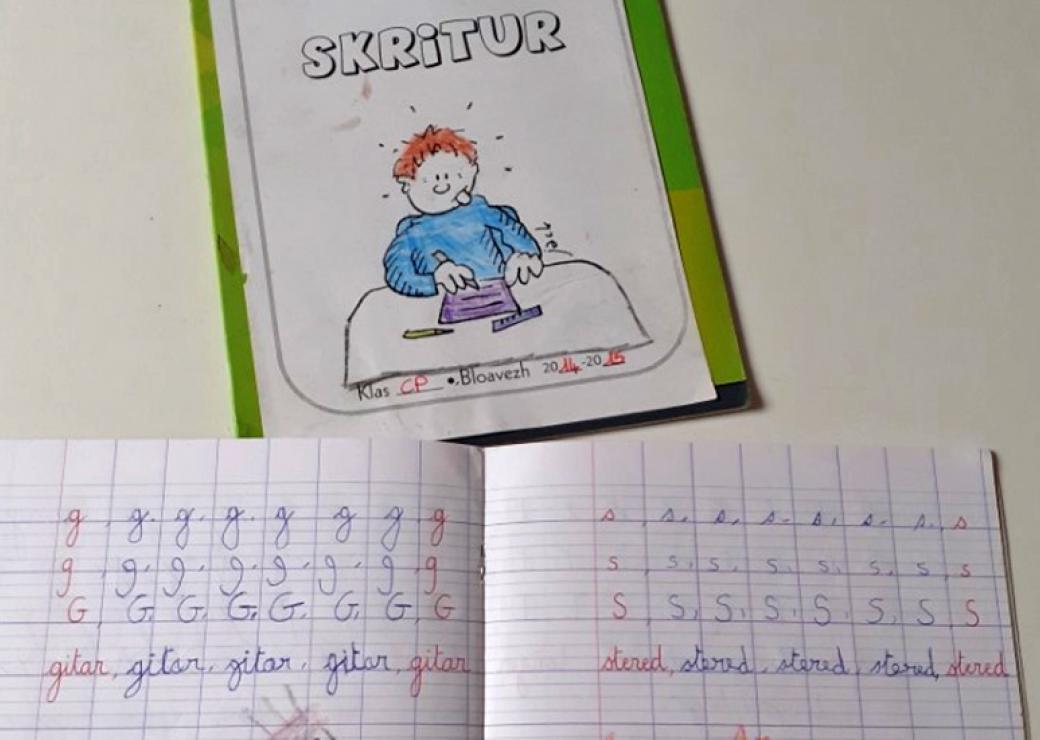 SKRiTUR
Klas CP •.Bloavezh 2014-2015
g, g. g. g. g g g g
g, g, g, g, g, g, g g
G, G, G, G, G, G, G, G
gitar, gitar, gitar, gitar, gitar
s, s, s, s, s, s, s, s
s, s, s, s, s, s, s, s
S, S, S, S, S, S, S S
stered, stered, stered, stered, stered